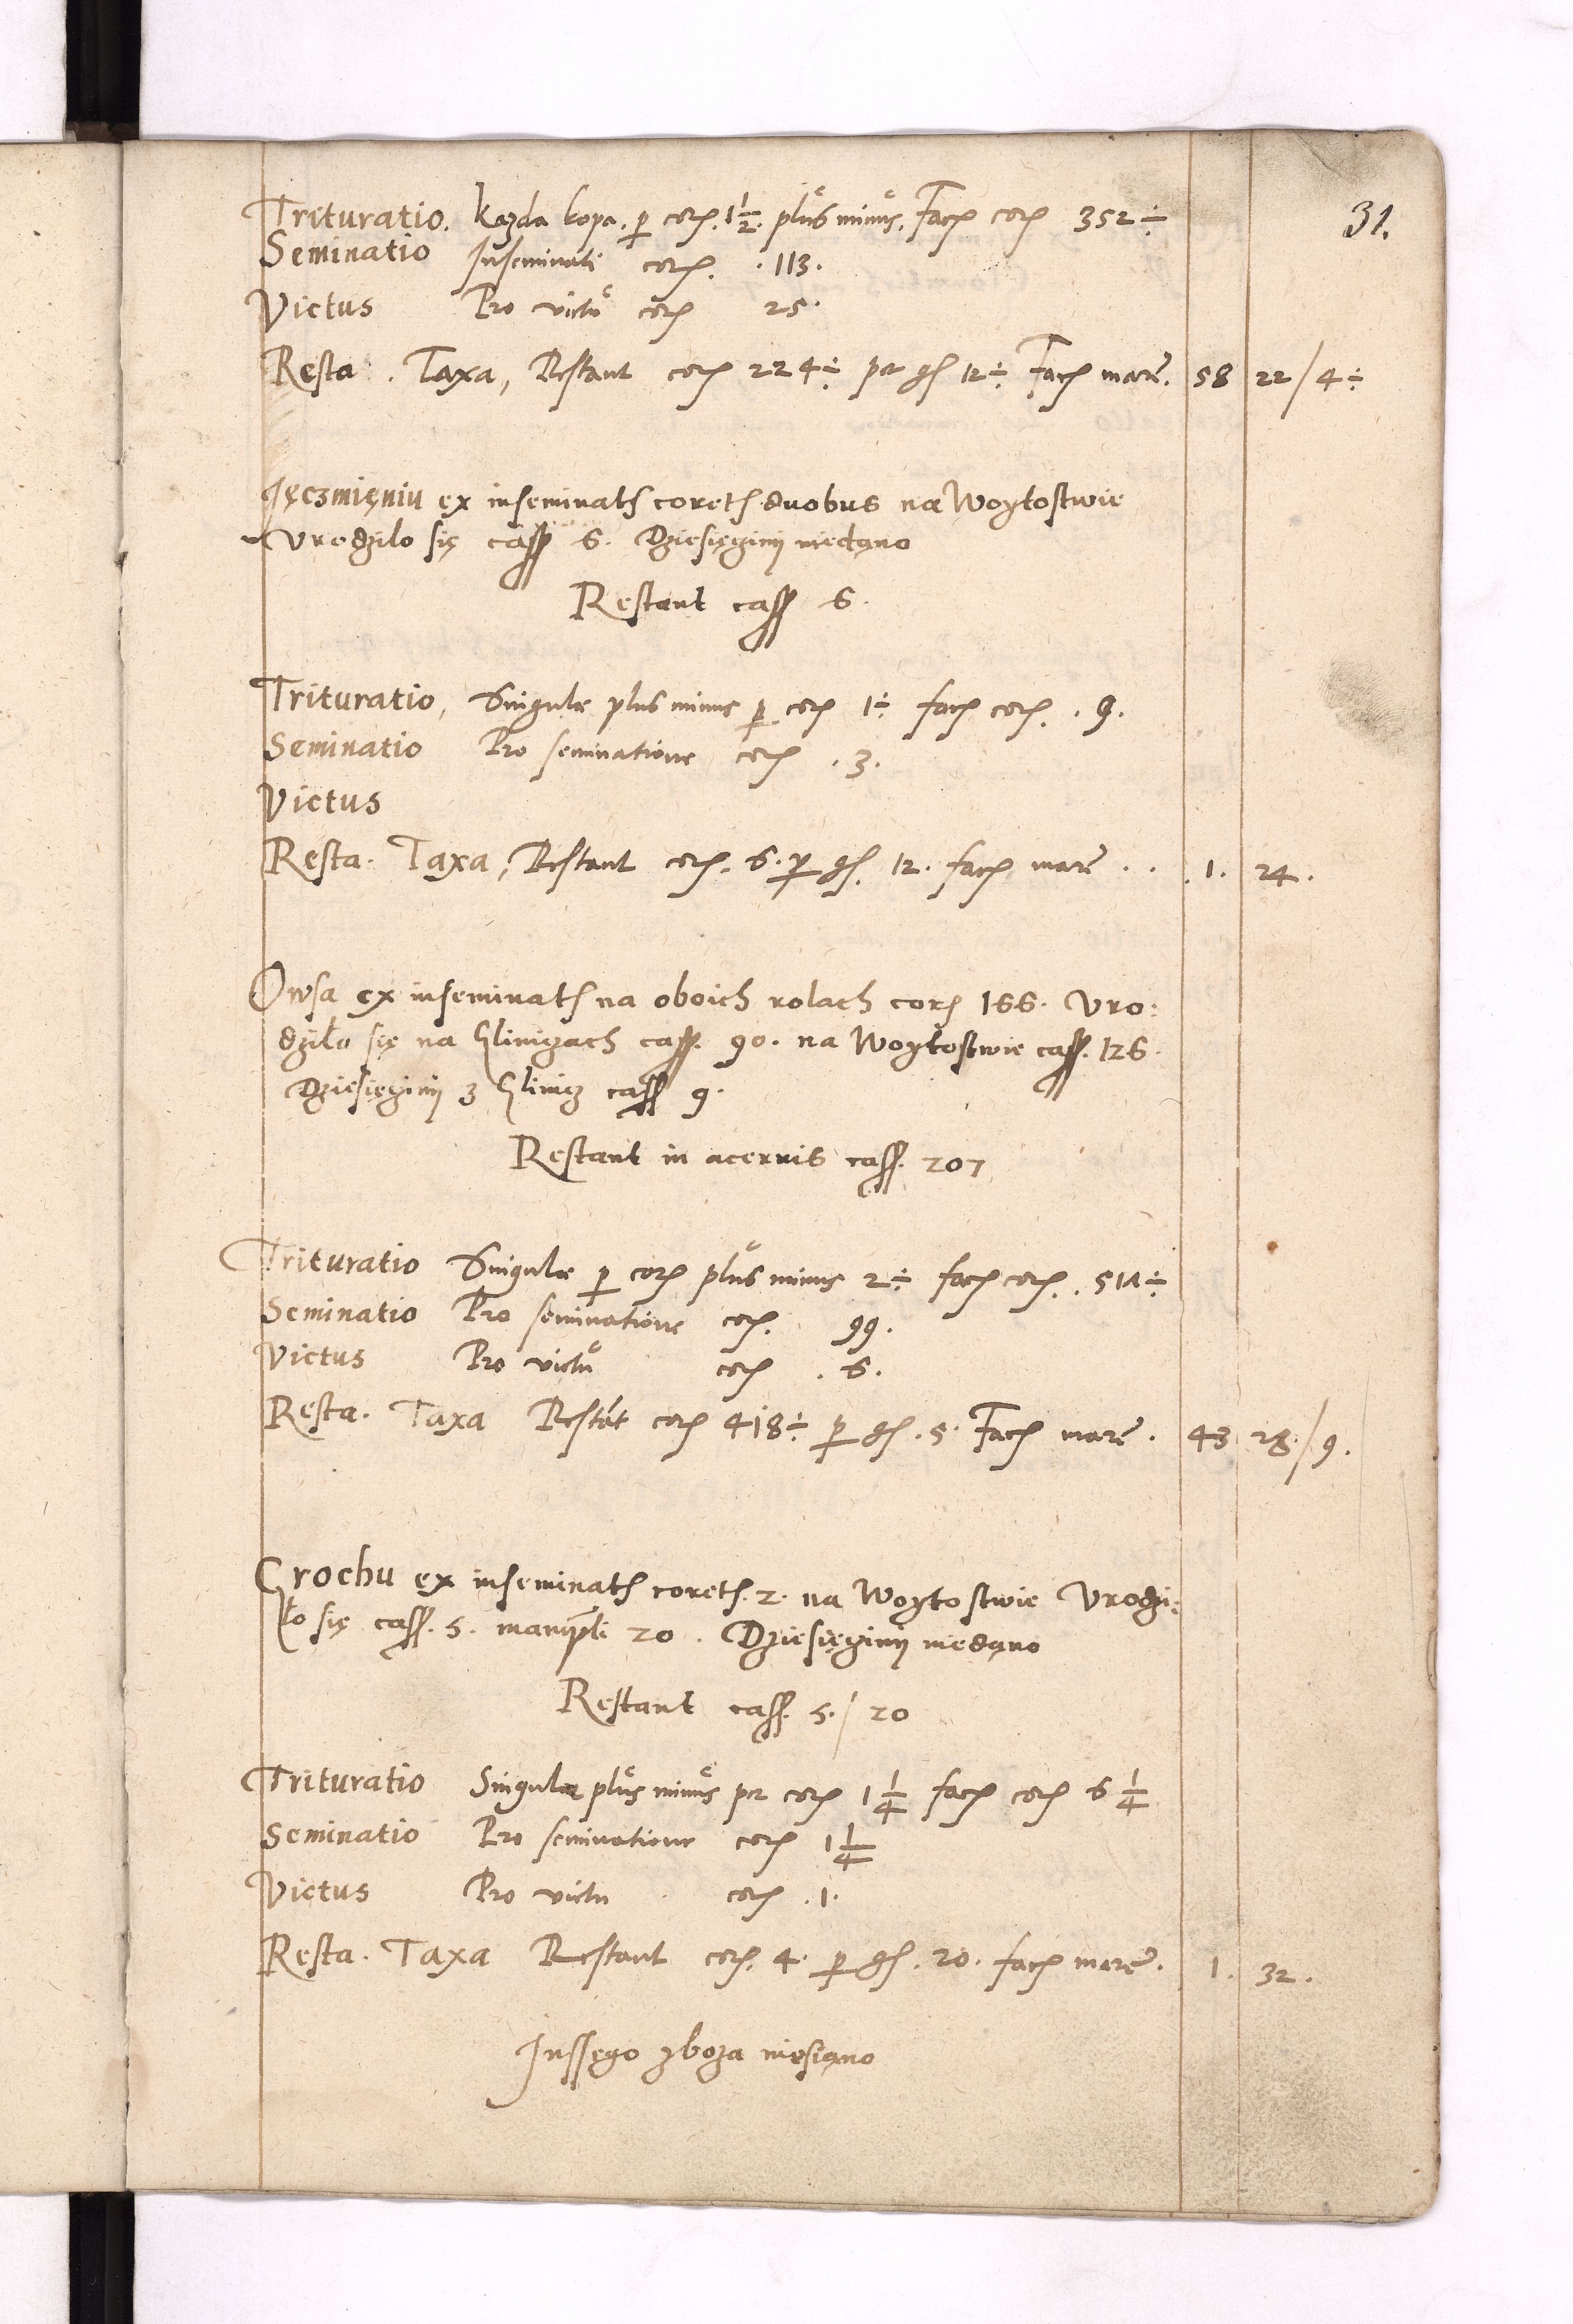 31.
Trituratio. Kazda kopa. p cor. 1 1/2. plus minus. Fac cor 352 ÷
Seminatio Inseminati cor. . 113.
Victus Pro victu cor 25.
Resta . Taxa, Restant cor 224 ÷ per gs 12 ÷ Fac marc. 58 22 / 4 ÷
Jęczmięniu ex inseminats corets duobus na Woytostwie
Urodzilo się cass 6. Dziesięginy niedąno
Restant cass 6.
Trituratio, Singulæ plus minus p cor 1 ÷ fac cor. . 9.
Seminatio Pro seminatione cor . 3.
Victus
Resta. Taxa, Restant cor. 6. p gs. 12. fac marc . . . 1. 24.
Owsa ex inseminats na oboich rolach cor 166. Uro:
dziło się na Glinizach cass. 90. na Woytostwie cass. 126.
Dziesięginy z Glinicz cass 9.
Restant in acervis cass. 207
Trituratio Singulæ p cor plus minus 2 ÷ fac cor. . 514 ÷
Seminatio Pro seminatione cor. 99.
Victus Pro victu cor . 6.
Resta. Taxa Restāt cor 418 ÷ p gs . 5. Fac marc . 43 28. / 9.
Grochu ex inseminats corets. 2. na Woytostwie Urodzi:
ło się cass. 5. manipli 20 . Dziesięginy niedąno
Restant cass. 5. / 20
Trituratio Singulæ plus minus per cor 1 1/4 fac cor 6 1/4
Seminatio Pro seminatione cor 1 1/4
Victus Pro victu cor . 1.
Resta. Taxa Restant cor. 4. p gs . 20. fac marc. 1. 32.
Inssęgo zboza niesiąno